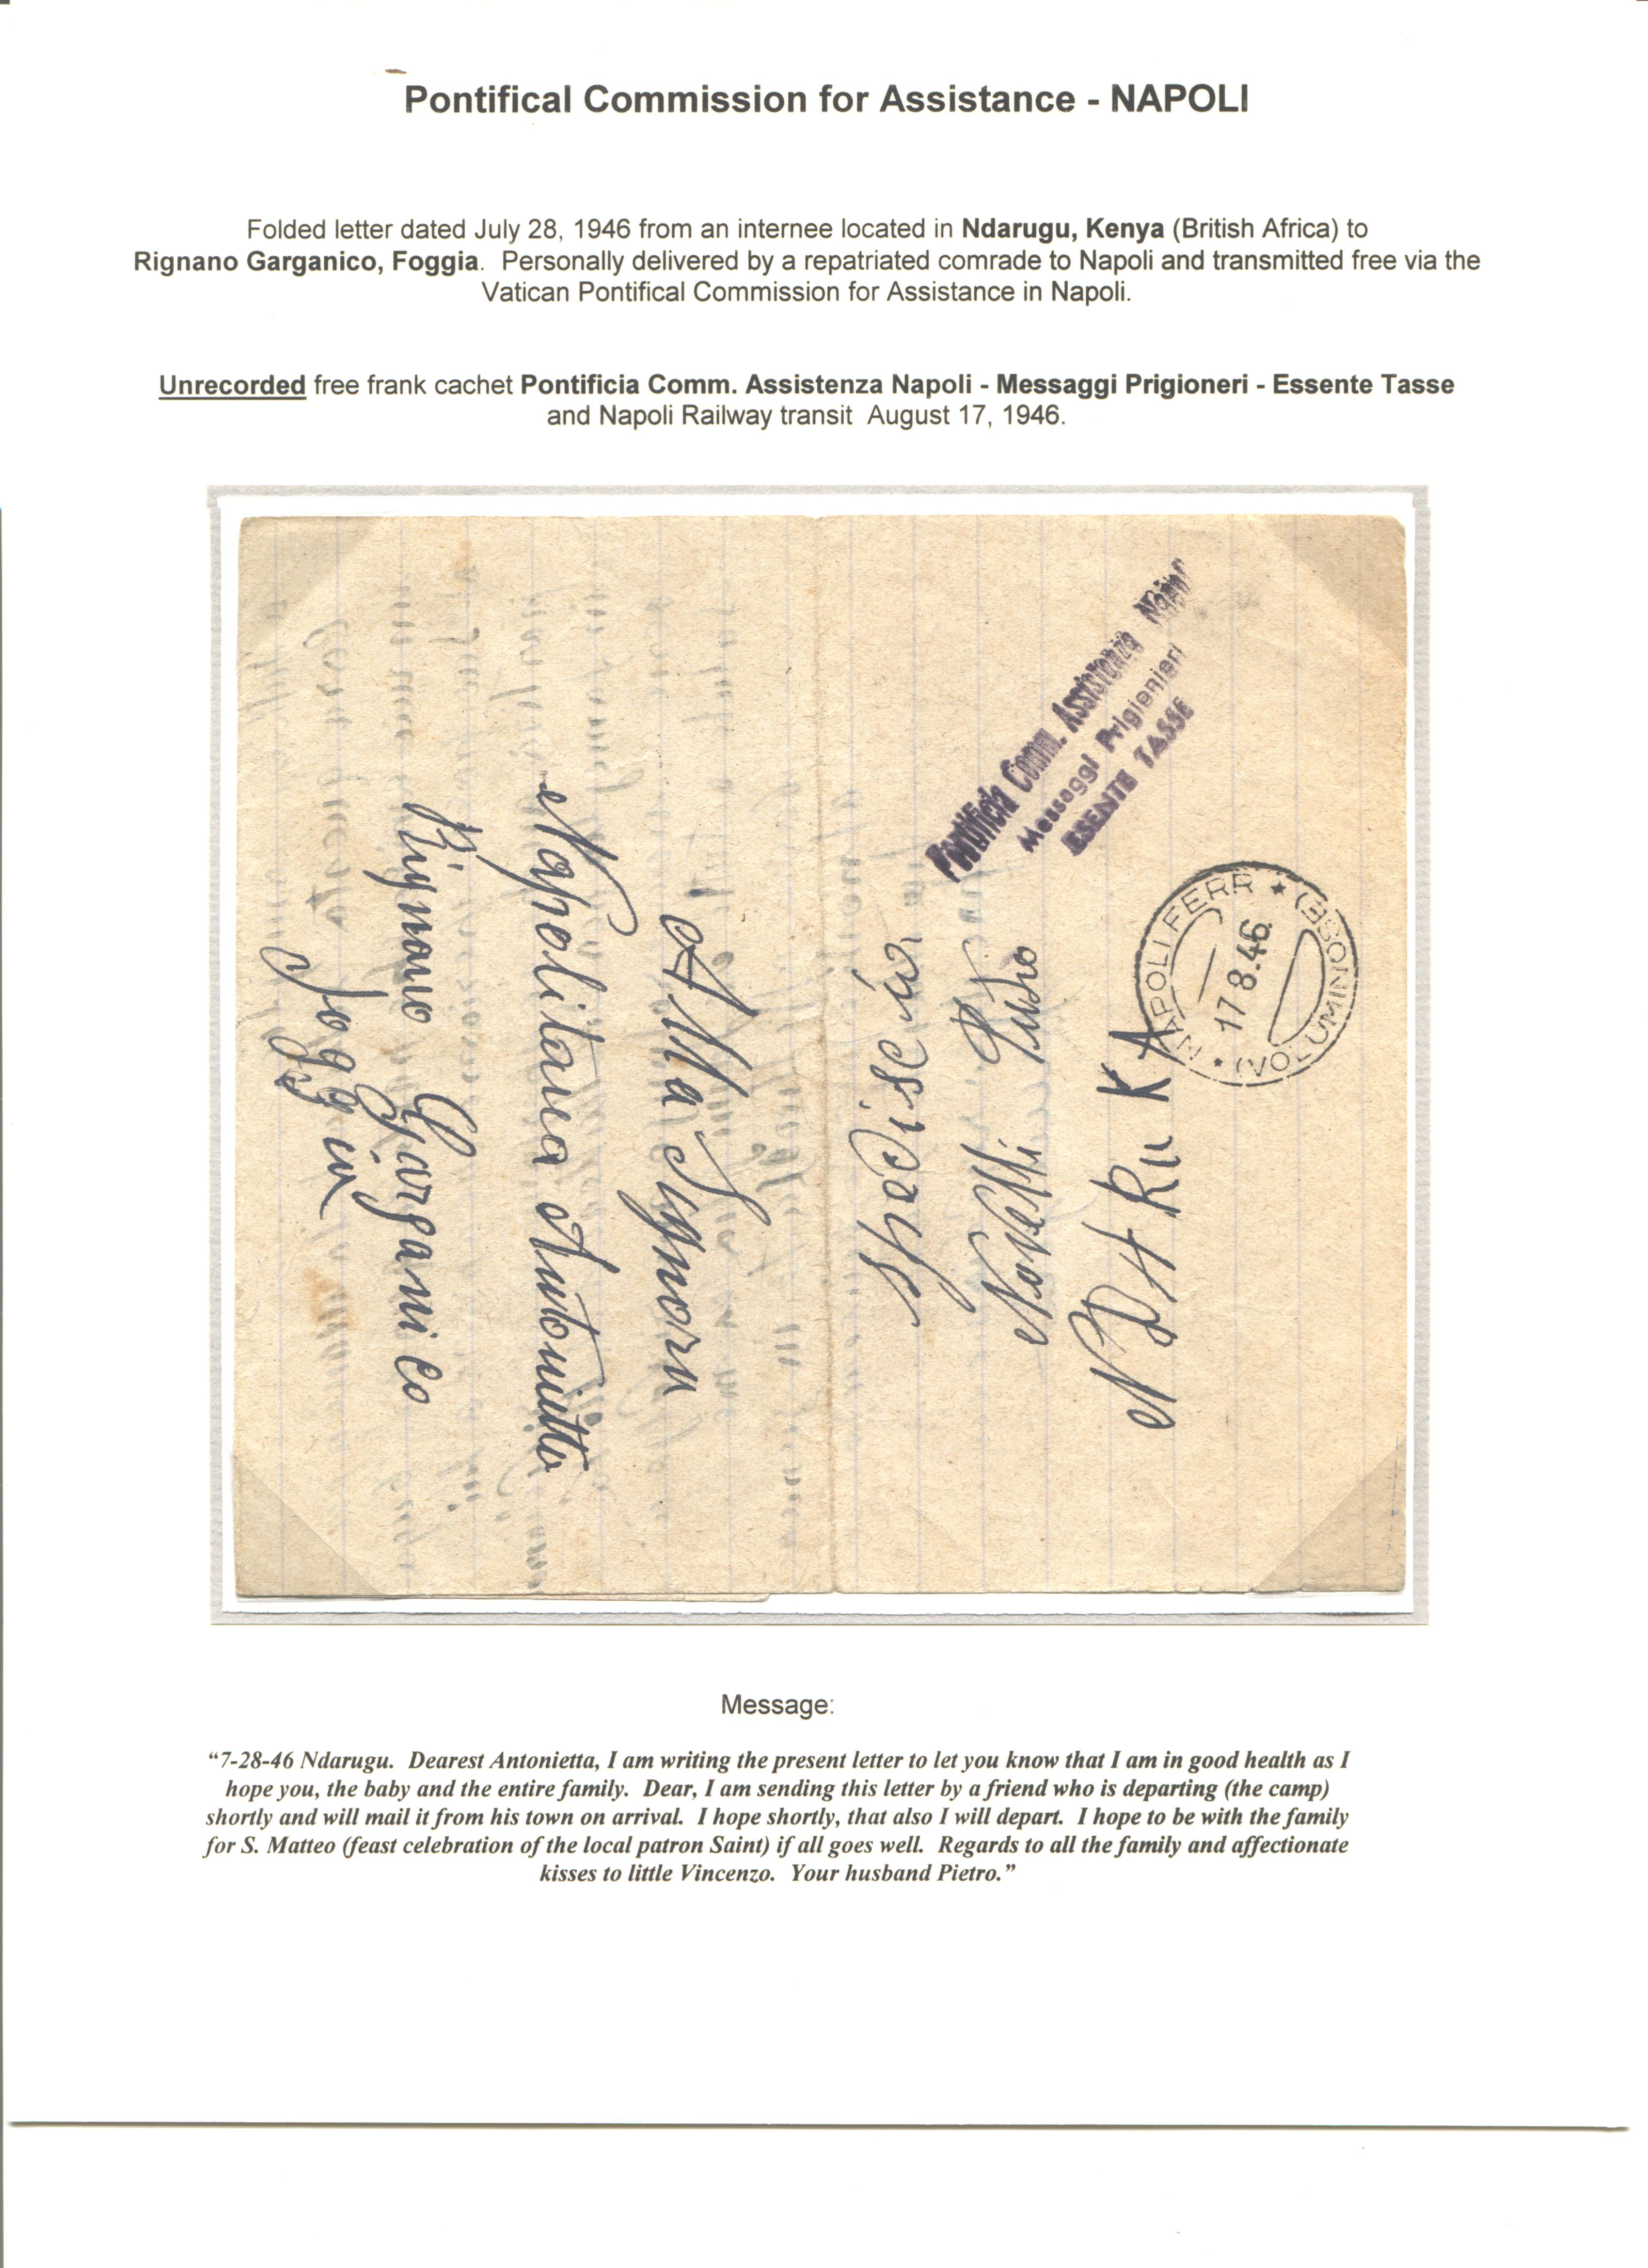 Pontifical Commission for Assistance - NAPOLI
Folded letter dated July 28, 1946 from an internee located in Ndarugu, Kenya (British Africa) to
Rignano Garganico, Foggia. Personally delivered by a repatriated comrade to Napoli and transmitted free via the
Vatican Pontifical Commission for Assistance in Napoli.
Unrecorded free frank cachet Pontificia Comm. Assistenza Napoli - Messaggi Prigioneri - Essente Tasse
and Napoli Railway transit August 17, 1946.
Pontificia Comm. Assistenza Napoli
Messaggi Prigionieri
ESENTE TASSE
NAPOLI FERR
(VOLUMINOSE)
17 8.46
spedisci
Novelli Pietro
NDARuKA
Alla Signora
Napolitano Antonietta
Rignano Garganico
Foggia
Message:
“7-28-46 Ndarugu. Dearest Antonietta, I am writing the present letter to let you know that I am in good health as I
hope you, the baby and the entire family. Dear, I am sending this letter by a friend who is departing (the camp)
shortly and will mail it from his town on arrival. I hope shortly, that also I will depart. I hope to be with the family
for S. Matteo (feast celebration of the local patron Saint) if all goes well. Regards to all the family and affectionate
kisses to little Vincenzo. Your husband Pietro.”